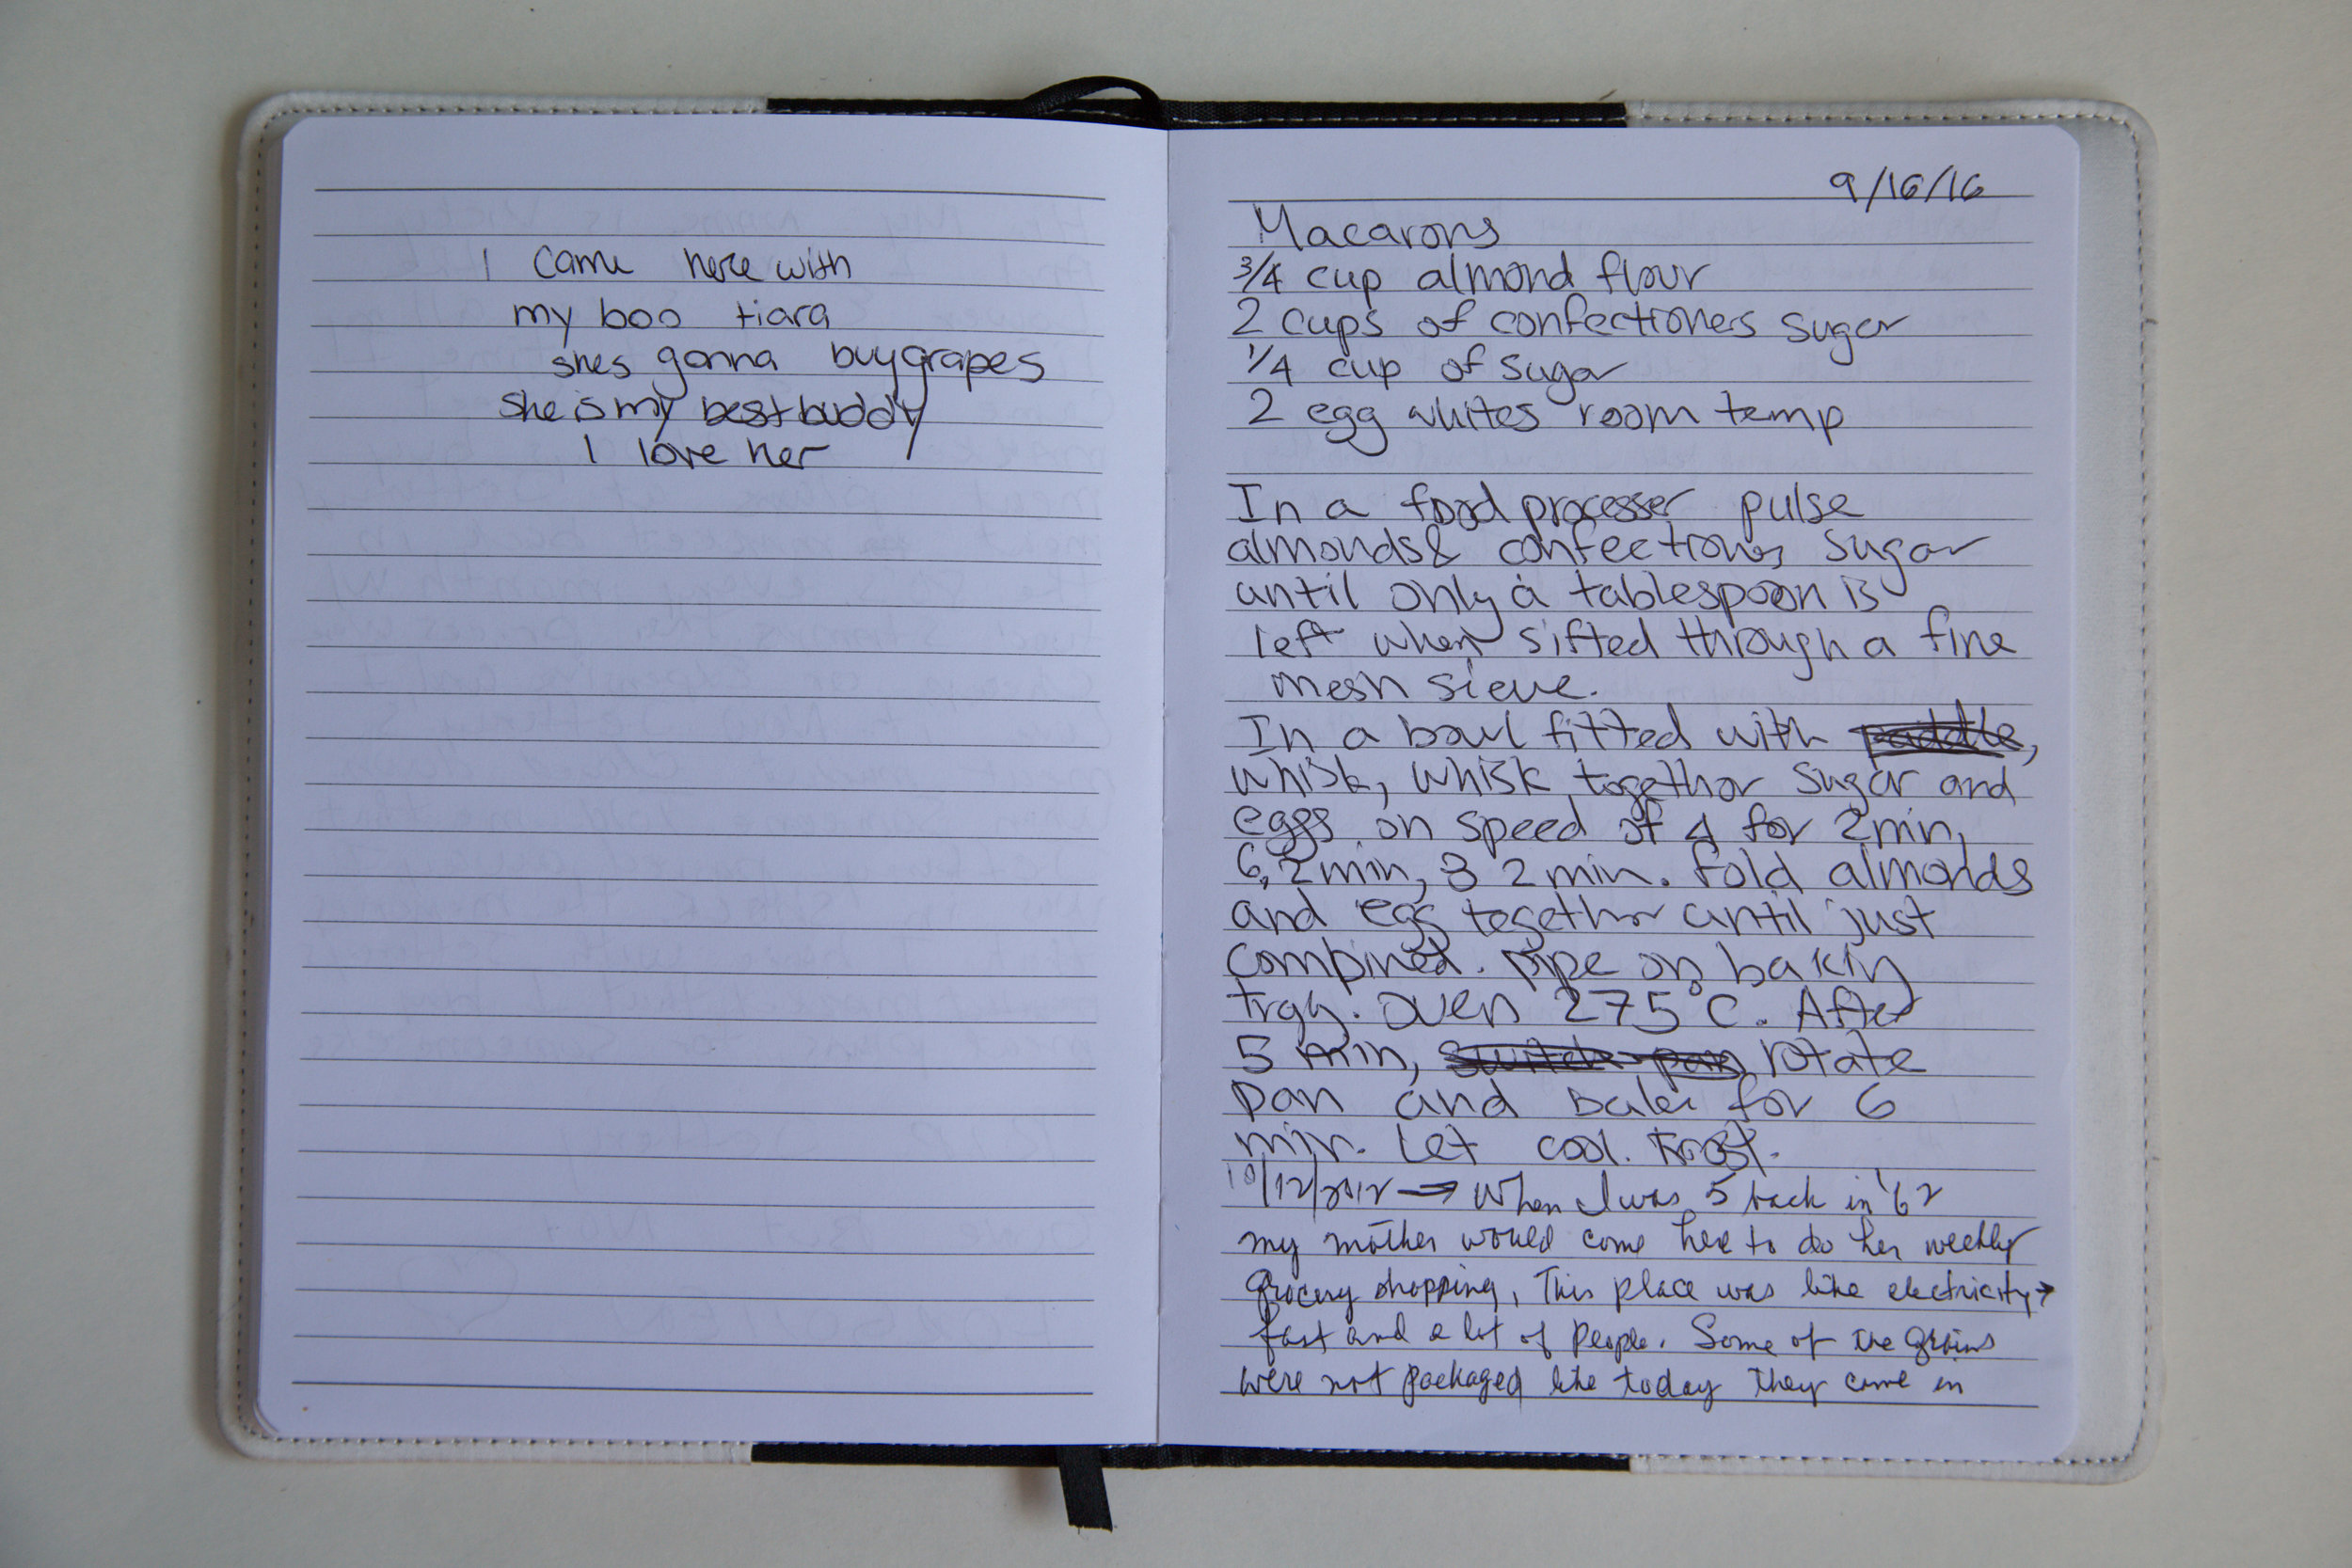 I came here with
my boo tiara
shes gonna buy grapes
She is my best buddy
I love her
9/16/16
Macarons
3/4 cup almond flour
2 cups of confectioners sugar
1/4 cup of sugar
2 egg whites room temp
In a food processer pulse
almonds & confectioners sugar
until only a tablespoon is
left when sifted through a fine
mesh sieve.
In a bowl fitted with paddle,
whisk, whisk together sugar and
eggs on speed of 4 for 2 min,
6, 2 min, 8 2 min. Fold almonds
and egg together until just
combined. pipe on baking
tray. oven 275°C. After
5 min, switch pan rotate
pan and bake for 6
min. Let cool. Frost.
10/12/2012 → When I was 5 back in '62
my mother would come here to do her weekly
grocery shopping, This place was like electricity →
fast and a lot of people. Some of the grains
were not packaged like today they came in